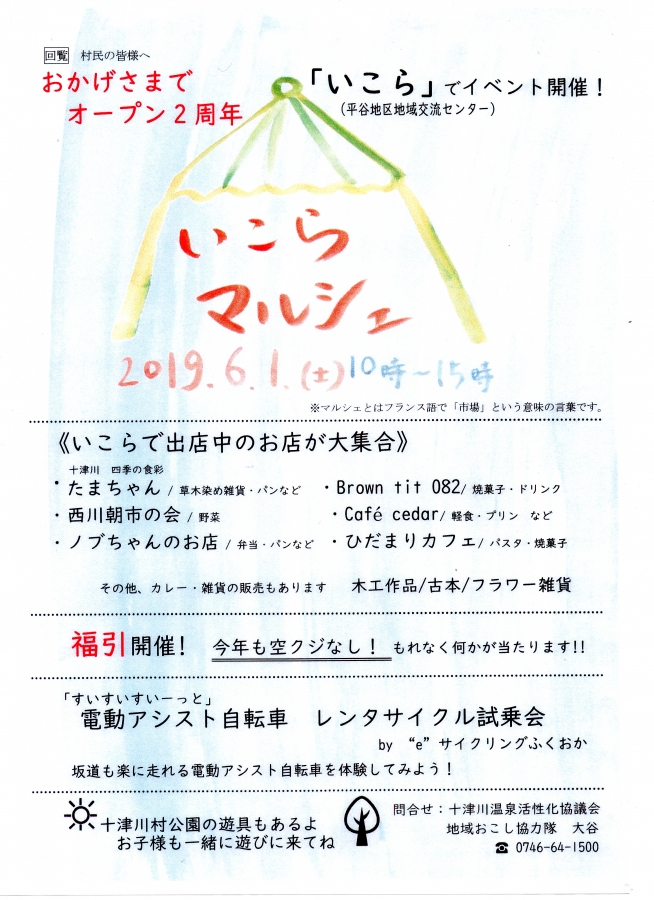 回覧 村民の皆様へ
おかげさまで
オープン2周年
「いこら」でイベント開催!
(平谷地区地域交流センター)
いこら
マルシェ
2019.6.1.(土)10時~15時
※マルシェとはフランス語で「市場」という意味の言葉です。
《いこらで出店中のお店が大集合》
十津川 四季の食彩
・たまちゃん / 草木染め雑貨・パンなど ・Brown tit 082/ 焼菓子・ドリンク
・西川朝市の会 / 野菜 ・Café cedar/ 軽食・プリン など
・ノブちゃんのお店 / 弁当・パンなど ・ひだまりカフェ/ パスタ・焼菓子
その他、カレー・雑貨の販売もあります 木工作品/古本/フラワー雑貨
福引開催! 今年も空クジなし! もれなく何かが当たります!!
「すいすいすいーっと」
電動アシスト自転車 レンタサイクル試乗会
by “e”サイクリングふくおか
坂道も楽に走れる電動アシスト自転車を体験してみよう!
十津川村公園の遊具もあるよ
お子様も一緒に遊びに来てね
問合せ:十津川温泉活性化協議会
地域おこし協力隊 大谷
☎ 0746-64-1500